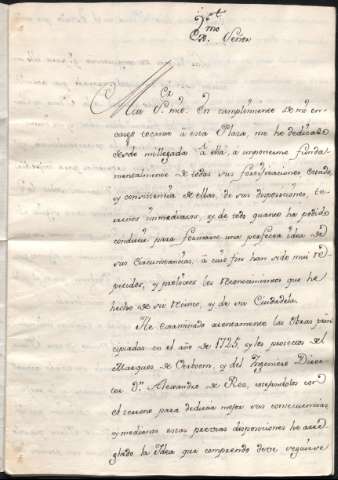 Exmo. Señor
Muy Sr. mio. En cumplimiento de mi en-
cargo tocante à esta Plaza, me he dedicado
desde mi llegada à ella, à imponerme funda-
mentalmente de todas sus fortificaciones, estado,
y consistencia de ellas, de sus disposiciones, te-
rrenos immediatos, y de todo quanto ha podido
conducir para formarme una perfecta idea de
sus circunstancias, à cuio fin han sido mui re-
petidos, y prolixos los reconocimientos que he
hecho de su Recinto, y de su Ciudadela.
He examinado atentamente las Obras prin-
cipiadas en el año de 1725, y los proiectos del
Marques de Verboom, y del Ingeniero Direc-
tor Dn. Alexandro de Rez, cotejandolos con
el terreno para deducir mejor sus consecuencias
y mediante estas precisas disposiciones he arre-
glado la Idea que comprendo deve seguirse